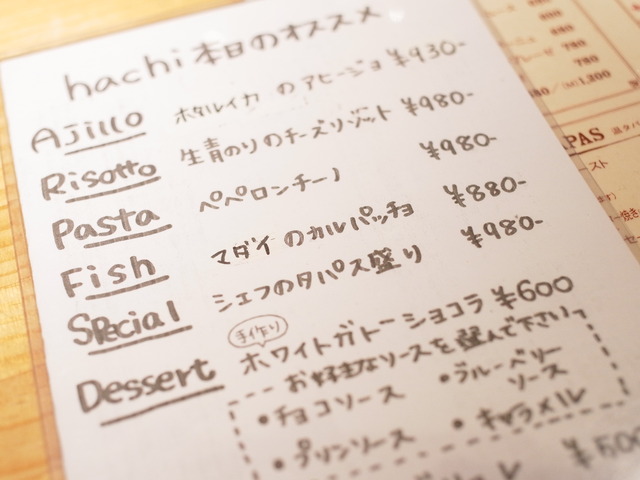 hachi 本日のオススメ
Ajillo ホタルイカ のアヒージョ ¥930-
Risotto 生青のりのチーズリゾット ¥980-
Pasta ペペロンチーノ ¥980-
Fish マダイ のカルパッチョ ¥880-
Special シェフのタパス盛り ¥980-
手作り
Dessert ホワイトガトーショコラ ¥600
お好きなソースを選んで下さい
・チョコソース ・ブルーベリーソース
・プリンソース ・キャラメル
¥500
1,200
PAS